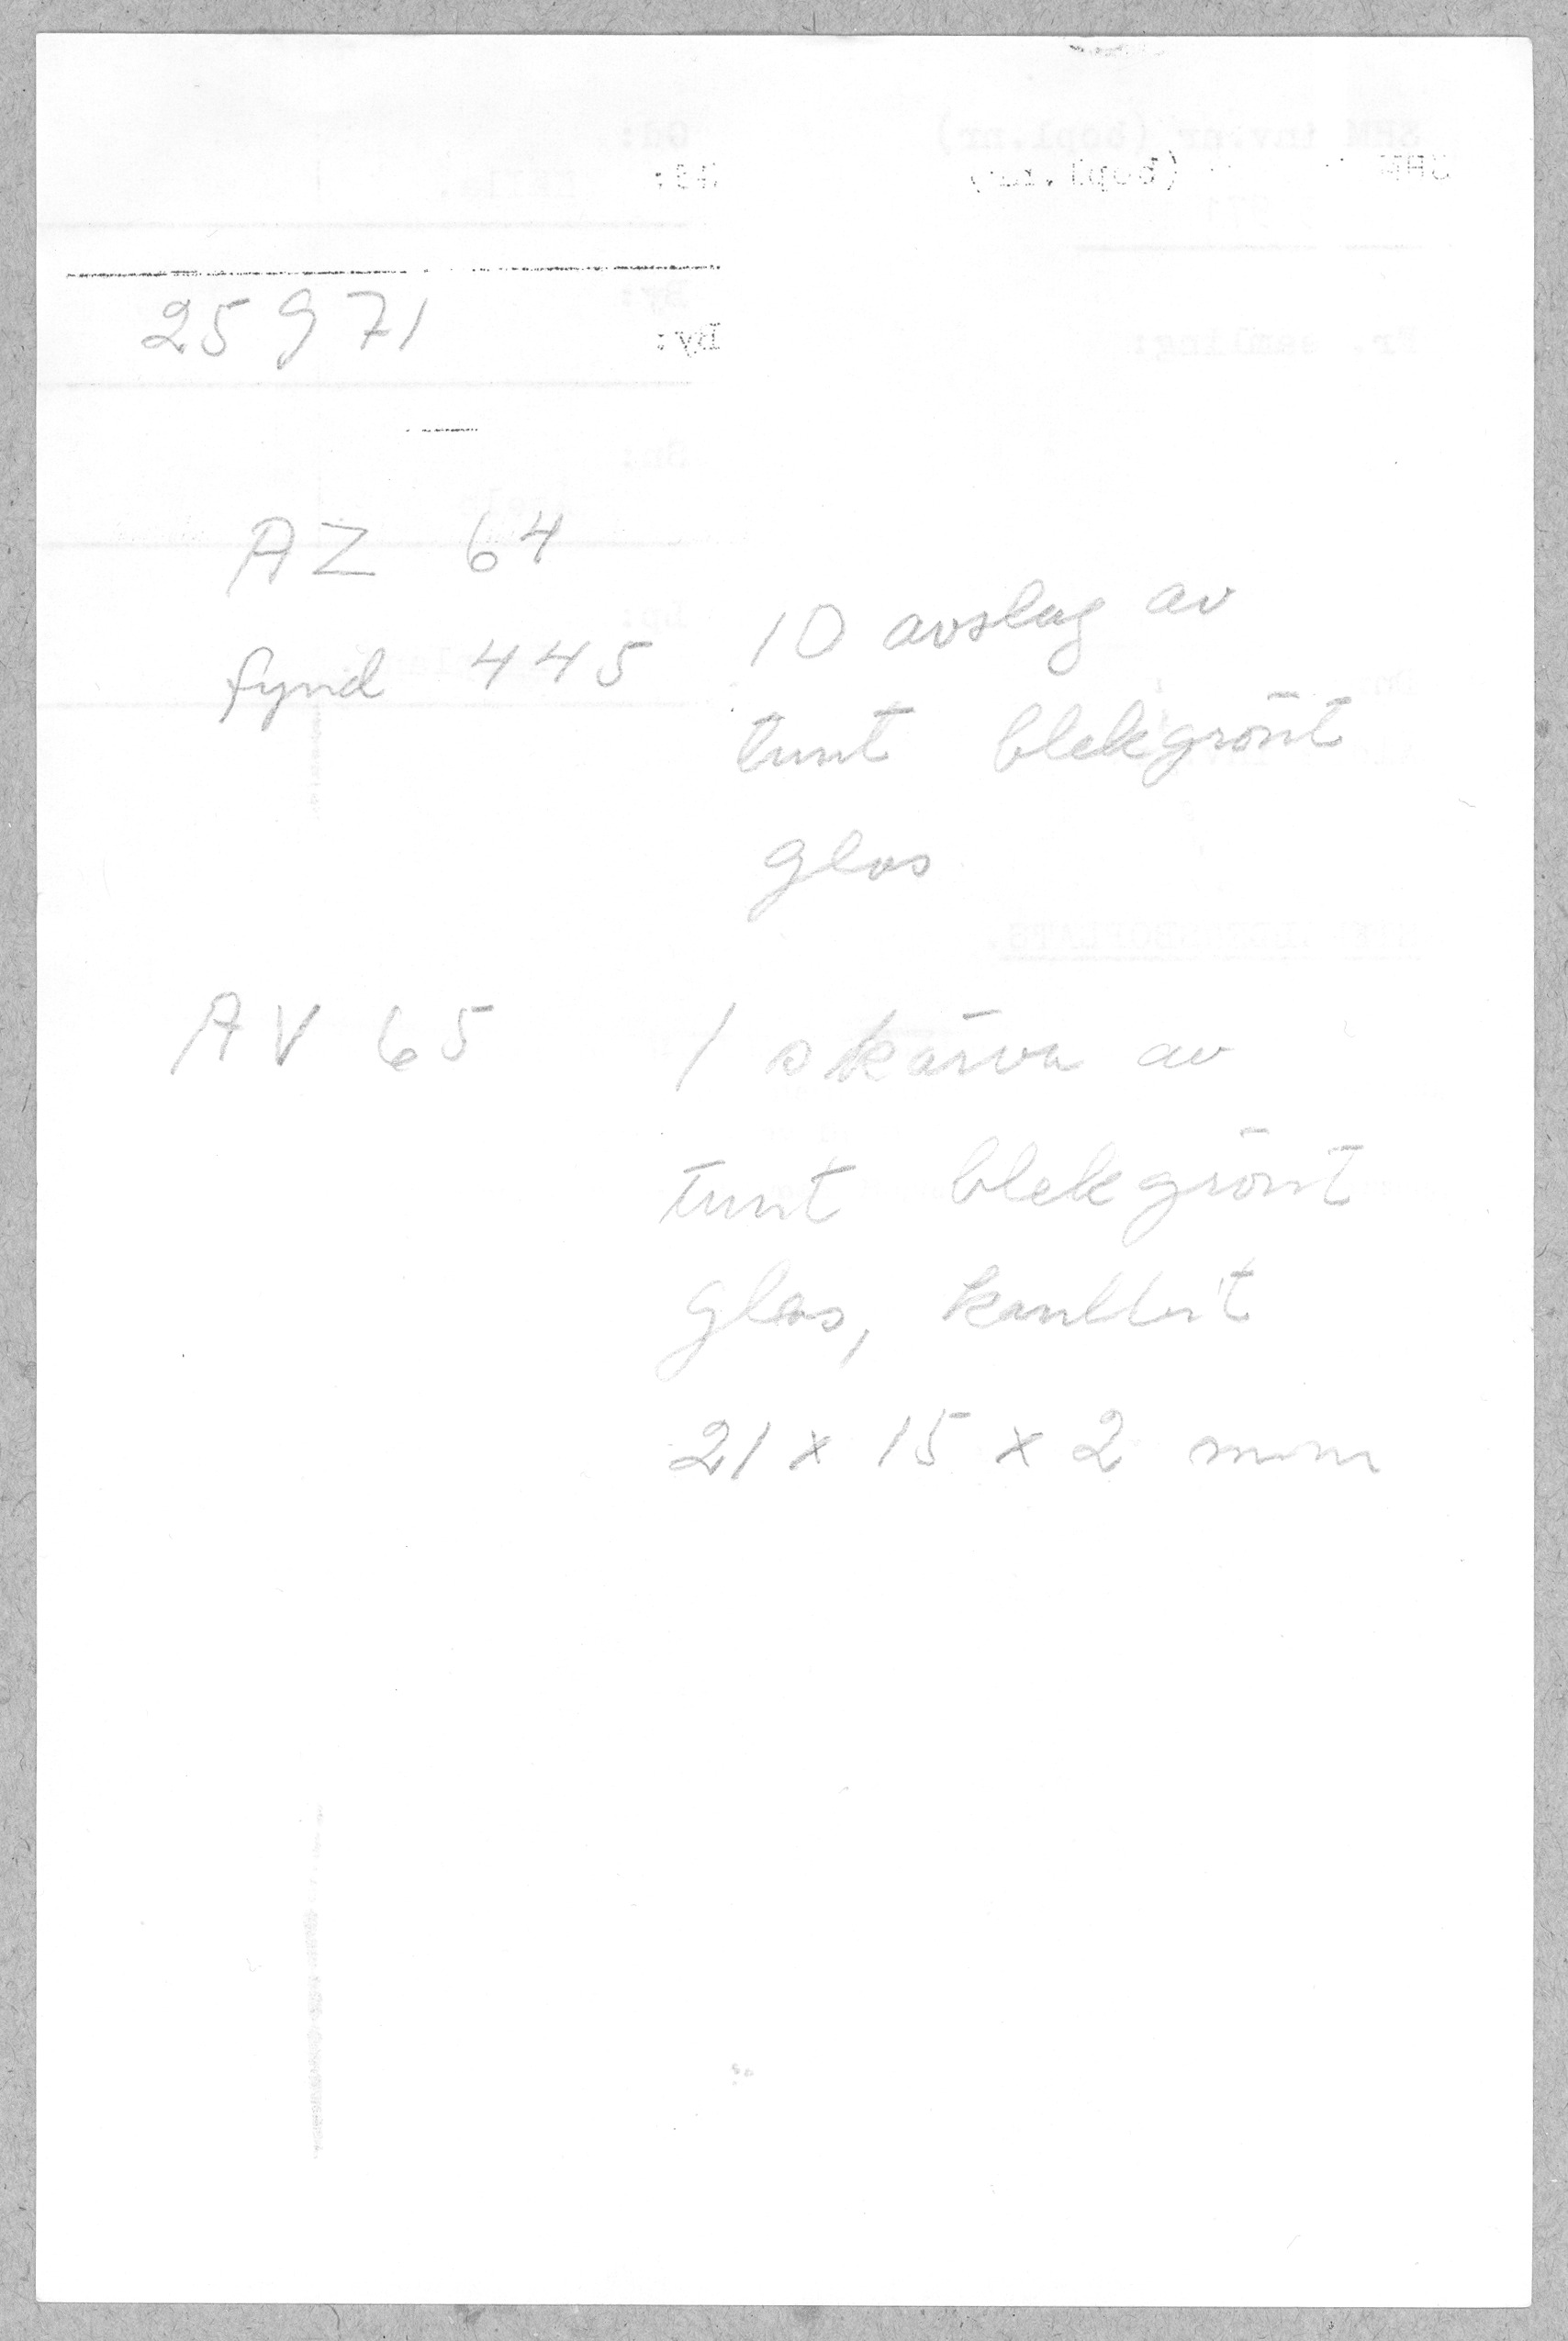 25971
AZ 64
fynd 445 10 avslag av
tunt blekgrönt
glas
AV 65 1 skärva av
tunt blekgrönt
glas,
21 x 15 x 2 mm